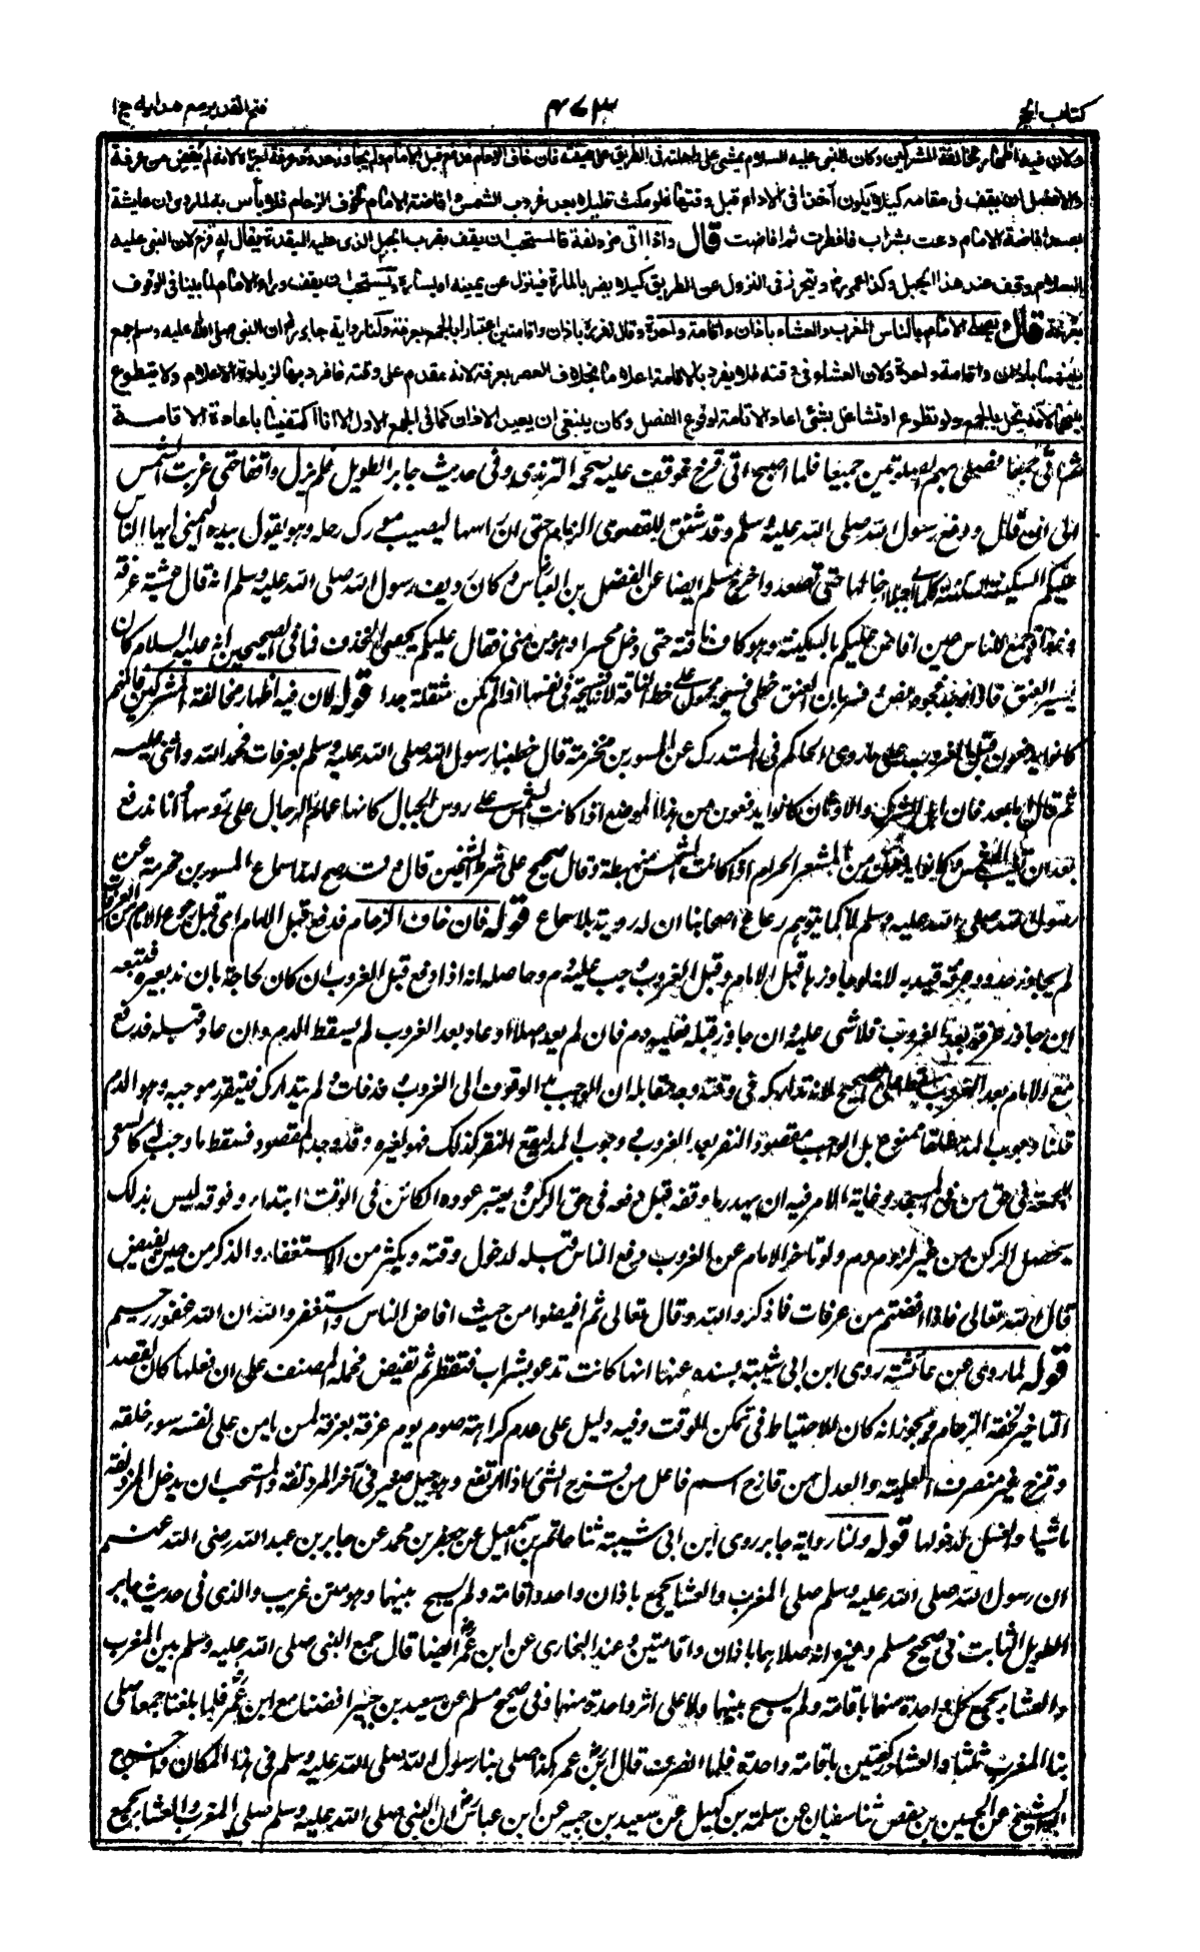 كتاب الحج
٤٧٣
فتح القدير مع هدايه ج ١
ولان فيه اظهار مخالفة المشركين وكان النبي عليه السلام يمشي على راحلته في الطريق على هينته فان خاف الزحام فدفع قبل الامام ولم يجاوز حدود عرفة اجزاه لانه لم يفض من عرفة
والافضل ان يقف في مقامه كيلا يكون آخذا في الاداء قبل وقتها فلو مكث قليلا بعد غروب الشمس وافاضة الامام لخوف الزحام فلا بأس به لما روي ان عايشة
بعد افاضة الامام دعت بشراب فافطرت ثم افاضت قال واذا اتى مزدلفة فالمستحب ان يقف بقرب الجبل الذي عليه الميقدة يقال له قزح لان النبي عليه
السلام وقف عند هذا الجبل وكذا عمر رضـ ويتحرز في النزول عن الطريق كيلا يضر بالمارة فينزل عن يمينه او يساره ويستحب ان يقف وراء الامام لما بينا في الوقوف
بعرفة قال ويصلي الامام بالناس المغرب والعشاء باذان واقامة واحدة وقال زفر رح باذان واقامتين اعتبارا بالجمع بعرفة ولنا رواية جابر رض ان النبي صلى الله عليه وسلم جمع
بينهما باذان واقامة واحدة ولان العشاء في وقته فلا يفرد بالاقامة اعلاما بخلاف العصر بعرفة لانه مقدم على وقته فافرد بها لزيادة الاعلام ولا يتطوع
بينهما لانه يخل بالجمع ولو تطوع او تشاغل بشئ اعاد الاقامة لوقوع الفصل وكان ينبغي ان يعيد الاذان كما في الجمع الاول الا انا اكتفينا باعادة الاقامة
ثم اتى جمعا فصلى بهم الصلوتين جميعا فلما اصبح اتى قزح فوقف عليه صححه الترمذي وفي حديث جابر الطويل فلم يزل واقفا حتى غربت الشمس
الى ان قال ودفع رسول الله صلى الله عليه وسلم وقد شنق للقصوى الزمام حتى ان راسها ليصيب مورك رحله وهو يقول بيده اليمنى ايها الناس
عليكم السكينة السكينة كلما اتى جبلا ارخا لها حتى تصعد واخرج مسلم ايضا عن الفضل بن العباس وكان رديف رسول الله صلى الله عليه وسلم انه قال عشية عرفة
وغداة جمع للناس حين افاض عليكم بالسكينة وهو كاف ناقته حتى دخل محسرا وهو من منى فقال عليكم بحصى الخذف فما في الصحيحين انه عليه السلام كان
يسير العنق فاذا وجد فجوة نص فسر بان العنق خطى فسيحة محمول على خط الناقة لانها فسيحة في نفسها اذا لم تكن مثقلة جدا قوله لان فيه اظهار مخالفة المشركين فانهم
كانوا يدفعون قبل الغروب على ما روى الحاكم في المستدرك عن المسور بن مخرمة قال خطبنا رسول الله صلى الله عليه وسلم بعرفات فحمد الله واثنى عليه
ثم قال اما بعد فان اهل الشرك والاوثان كانوا يدفعون من هذا الموضع اذا كانت الشمس على روس الجبال كانها عمائم الرجال على رؤسها وانا ندفع
بعد ان تغيب الشمس وكانوا يدفعون من المشعر الحرام اذا كانت الشمس منبسطة وقال صحيح على شرط الشيخين قال وقد صح لهذا سماع المسور بن مخرمة عن
رسول الله صلى الله عليه وسلم لا كما يتوهم رعاع اصحابنا ان له روية بلا سماع قوله فان خاف الزحام فدفع قبل الامام اي قبل دفع الامام من العرفات
لم يجاوز حدود عرفة قيد به لانه لو جاوزها قبل الامام وقبل الغروب وجب عليه دم وحاصله انه اذا دفع قبل الغروب ان كان لحاجة بان ند بعيره فتبعه
ان جاوز عرفة بعد الغروب فلا شئ عليه وان جاوز قبله فعليه دم فان لم يعد اصلا او عاد بعد الغروب لم يسقط الدم وان عاد قبله فدفع
مع الامام بعد الغروب سقط على الصحيح لانه تداركه في وقته وجه مقابله ان الواجب مد الوقوف الى الغروب وقد فات ولم يتداركه فيتقرر موجبه وهو الدم
قلنا وجوب المد مطلقا ممنوع بل الواجب مقصود النفر بعد الغروب ووجوب المد ليقع النفر كذلك فهو لغيره وقد وجد المقصود فسقط ما وجب له كالسعي
للجمعة في حق من في المسجد وغاية الامر فيه ان يهدر ما وقفه قبل دفعه في حق الركن ويعتبر عوده الكائن في الوقت ابتداء وقوفه اليس بذلك
يحصل الركن من غير لزوم دم ولو تاخر الامام عن الغروب دفع الناس قبله لدخول وقته ويكثر من الاستغفار والذكر من حين يفيض
قال الله تعالى فاذا افضتم من عرفات فاذكروا الله وقال تعالى ثم افيضوا من حيث افاض الناس واستغفروا الله ان الله غفور رحيم
قوله لما روي عن عائشة روى ابن ابي شيبة بسنده عنها انها كانت تدعو بشراب فتفطر ثم تفيض فحمله المصنف على ان فعلها كان لقصد
التاخير لخفة الزحام ويجوز انه كان للاحتياط في تمكن الوقت وفيه دليل على عدم كراهة صوم يوم عرفة بعرفة لمن يامن على نفسه سوء خلقه
وقزح غير منصرف للعلمية والعدل من قازح اسم فاعل من قزح الشئ اذا ارتفع وهو جبل صغير في آخر المزدلفة والمستحب ان يدخل المزدلفة
ماشيا والغسل لدخولها قوله ولنا رواية جابر روى ابن ابي شيبة ثنا حاتم بن اسمعيل عن جعفر بن محمد عن جابر بن عبد الله رضي الله عنهم
ان رسول الله صلى الله عليه وسلم صلى المغرب والعشاء بجمع باذان واحد واقامة ولم يسبح بينهما وهو متن غريب والذي في حديث جابر
الطويل الثابت في صحيح مسلم وغيره انه صلاهما باذان واقامتين وعند البخاري عن ابن عمر ايضا قال جمع النبي صلى الله عليه وسلم بين المغرب
والعشاء بجمع كل واحدة منهما باقامة ولم يسبح بينهما ولا على اثر واحدة منهما وفي صحيح مسلم عن سعيد بن جبير افضنا مع ابن عمر فلما بلغنا جمعا صلى
بنا المغرب ثلثا والعشاء ركعتين باقامة واحدة فلما انصرف قال ابن عمر هكذا صلى بنا رسول الله صلى الله عليه وسلم في هذا المكان واخرج
ابو الشيخ عن الحسين بن حفص ثنا سفيان عن سلمة بن كهيل عن سعيد بن جبير عن ابن عباس ان النبي صلى الله عليه وسلم صلى المغرب والعشاء بجمع